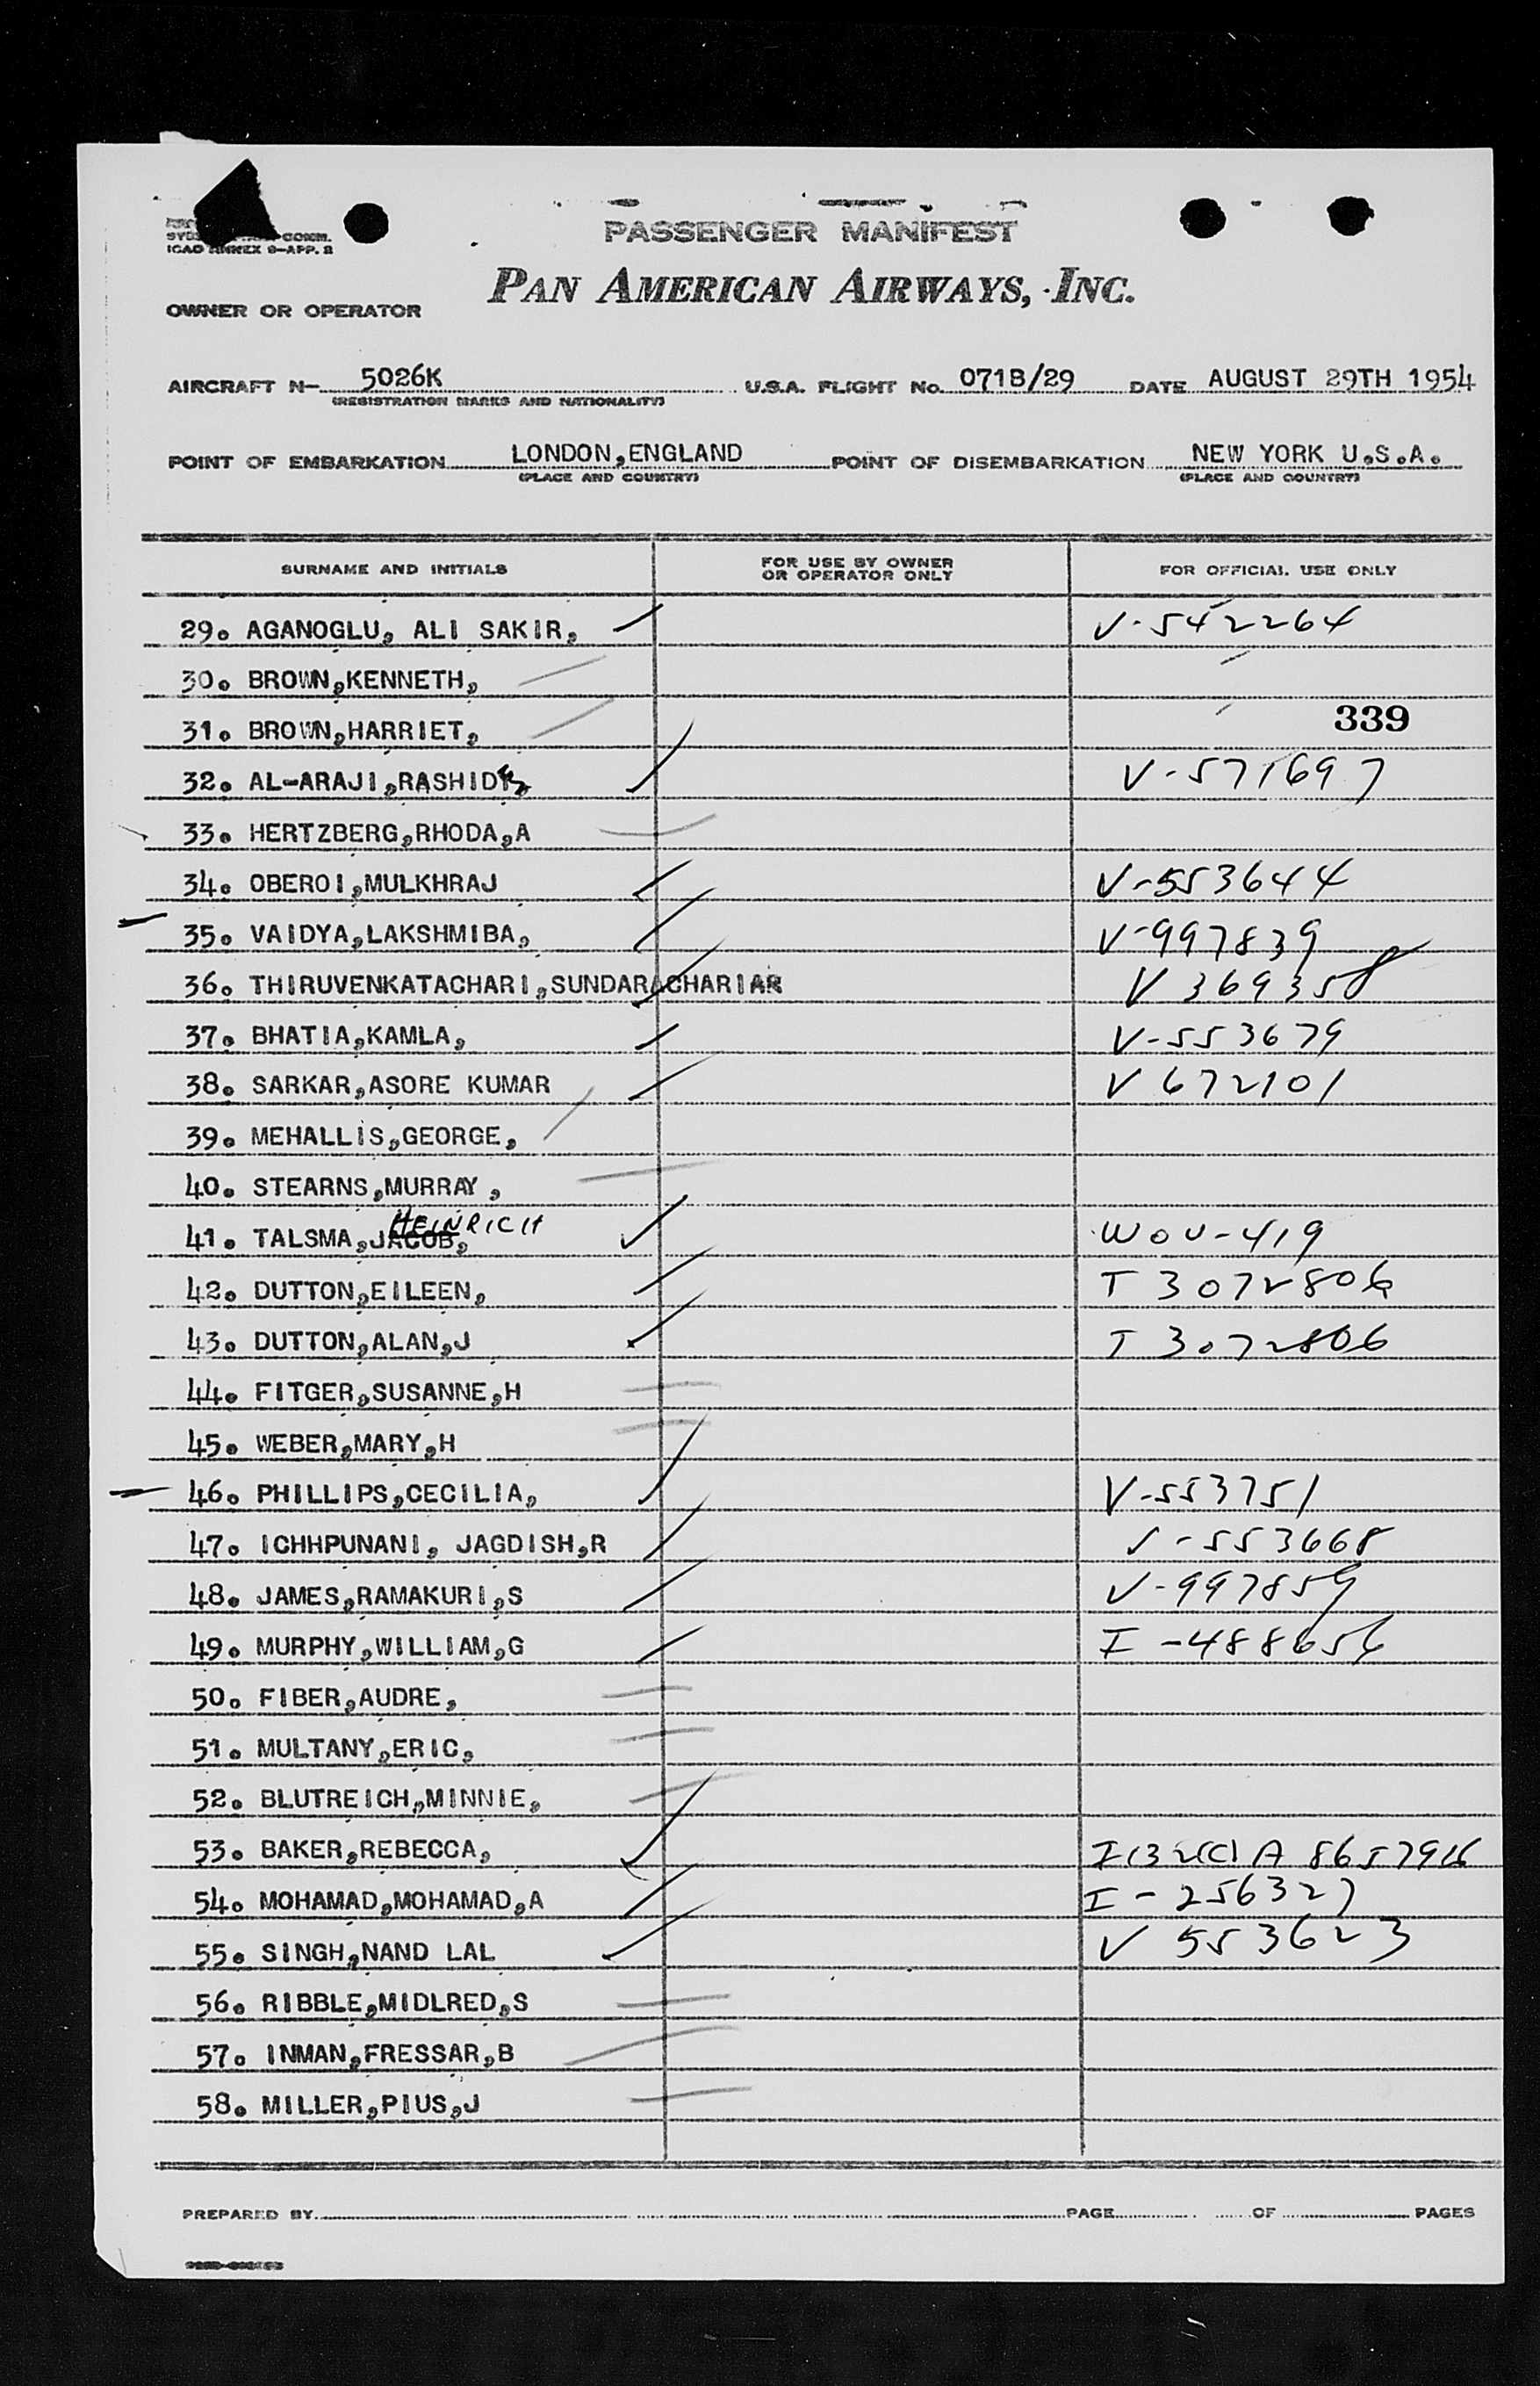 PASSENGER MANIFEST
ICAO ANNEX 9-APP. 2
PAN AMERICAN AIRWAYS, INC.
OWNER OR OPERATOR
AIRCRAFT N- 5026K U.S.A. FLIGHT No. 071B/29 DATE AUGUST 29TH 1954
(REGISTRATION MARKS AND NATIONALITY)
POINT OF EMBARKATION LONDON,ENGLAND POINT OF DISEMBARKATION NEW YORK U.S.A.
(PLACE AND COUNTRY) (PLACE AND COUNTRY)
SURNAME AND INITIALS FOR USE BY OWNER OR OPERATOR ONLY FOR OFFICIAL USE ONLY
29. AGANOGLU, ALI SAKIR, V-542264
30. BROWN,KENNETH,
31. BROWN,HARRIET, 339
32. AL-ARAJI,RASHID V-571697
33. HERTZBERG,RHODA,A
34. OBEROI,MULKHRAJ V-553644
35. VAIDYA,LAKSHMIBA, V-997839
36. THIRUVENKATACHARI,SUNDARACHARIAR V 369358
37. BHATIA,KAMLA, V-553679
38. SARKAR,ASORE KUMAR V 672101
39. MEHALLIS,GEORGE,
40. STEARNS,MURRAY,
41. TALSMA,JACOB, HEINRICH WOU-419
42. DUTTON,EILEEN, T 3072806
43. DUTTON,ALAN,J T 3072806
44. FITGER,SUSANNE,H
45. WEBER,MARY,H
46. PHILLIPS,CECILIA, V-553751
47. ICHHPUNANI, JAGDISH,R V-553668
48. JAMES,RAMAKURI,S V-997859
49. MURPHY,WILLIAM,G I-488656
50. FIBER,AUDRE,
51. MULTANY,ERIC,
52. BLUTREICH,MINNIE,
53. BAKER,REBECCA, A
54. MOHAMAD,MOHAMAD,A I-256327
55. SINGH,NAND LAL V 553623
56. RIBBLE,MIDLRED,S
57. INMAN,FRESSAR,B
58. MILLER,PIUS,J
PREPARED BY PAGE OF PAGES